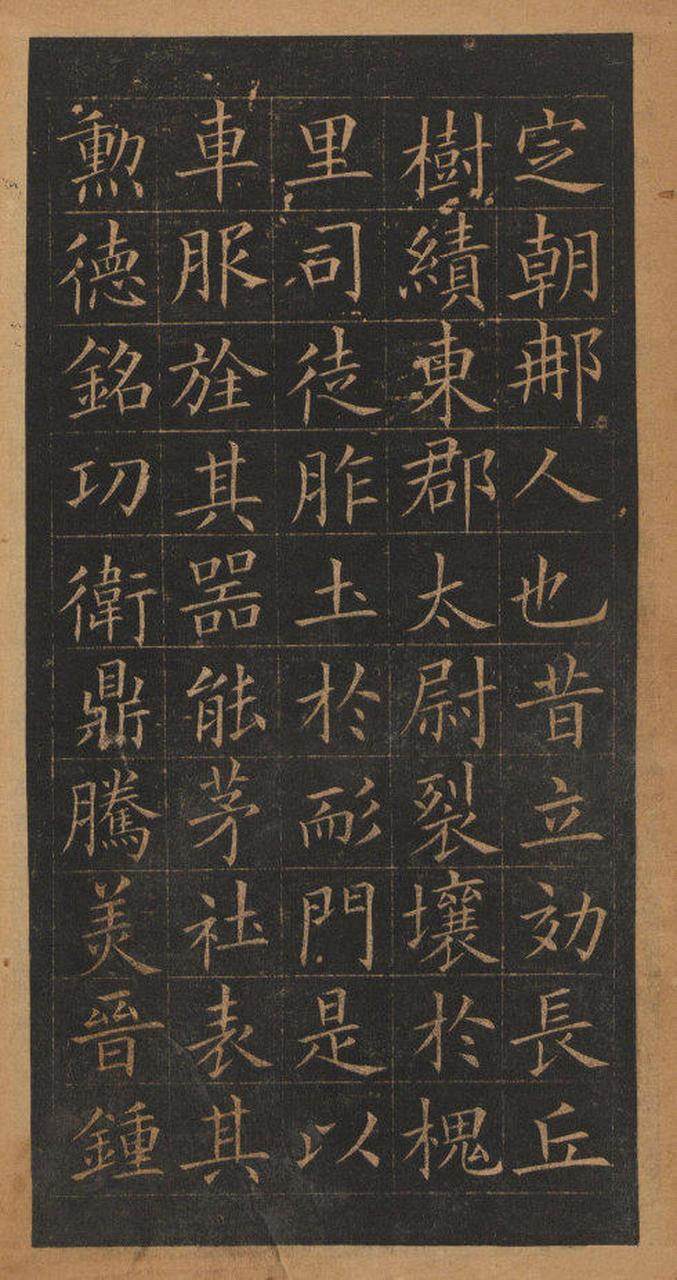 定朝郍人也昔立効長丘
樹績東郡太尉裂壤於槐
里司徒胙土於耏門是以
車服旌其器能茅社表其
勲徳銘功衛鼎騰美晉鍾